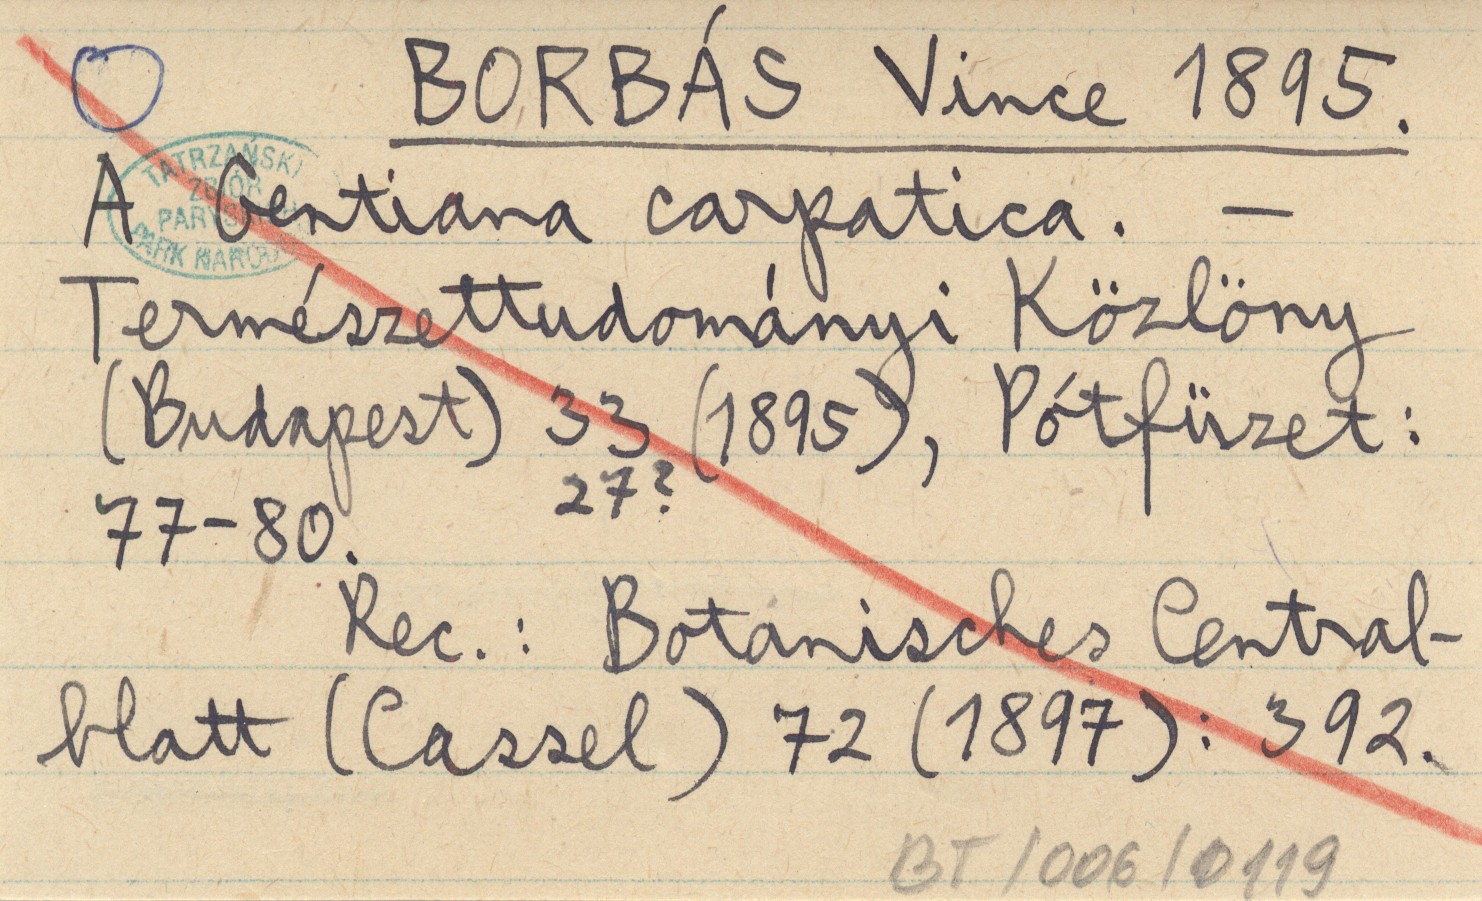 BORBÁS Vince 1895.
TATRZAŃSKI
PARK NAROD
A Gentiana carpatica. –
Természettudományi Közlöny
(Budapest) 33 (1895), Pótfüzet:
27?
77-80.
Rec.: Botanisches Central-
blatt (Cassel) 72 (1897): 392.
BT/006/0119